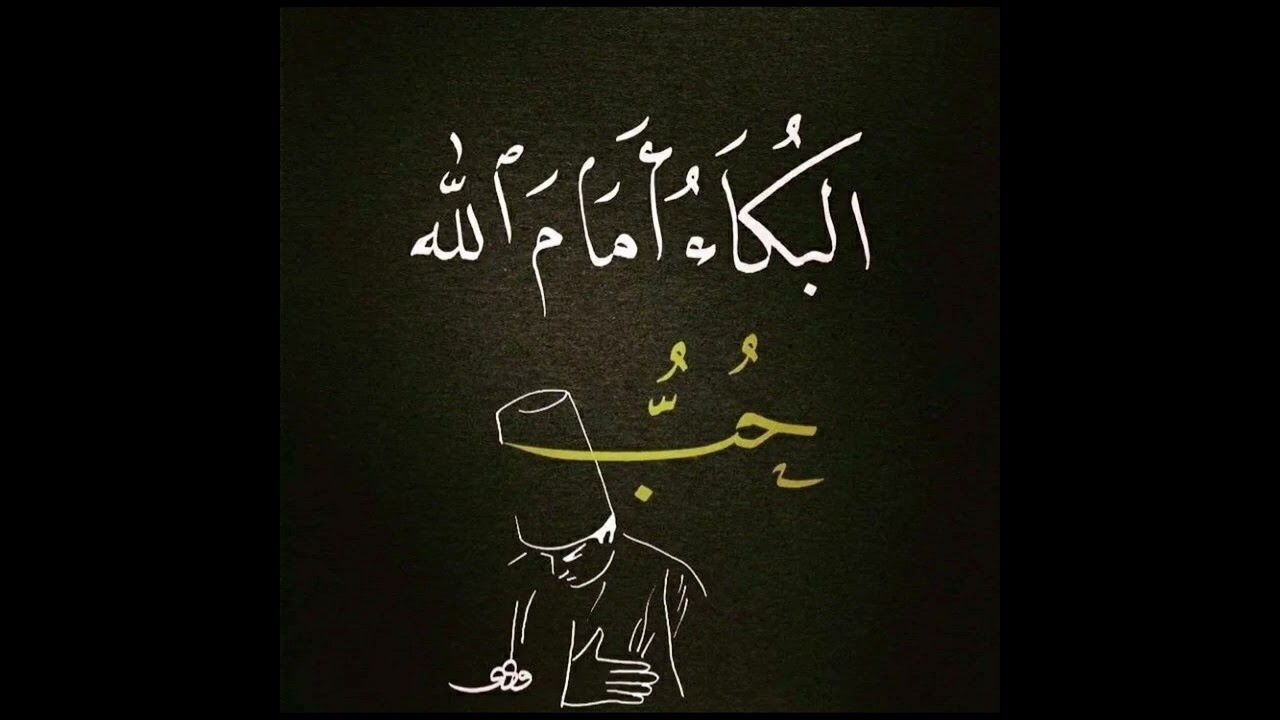 البُكَاَءُ أَمَامَ ٱللّٰه
حُبُّ